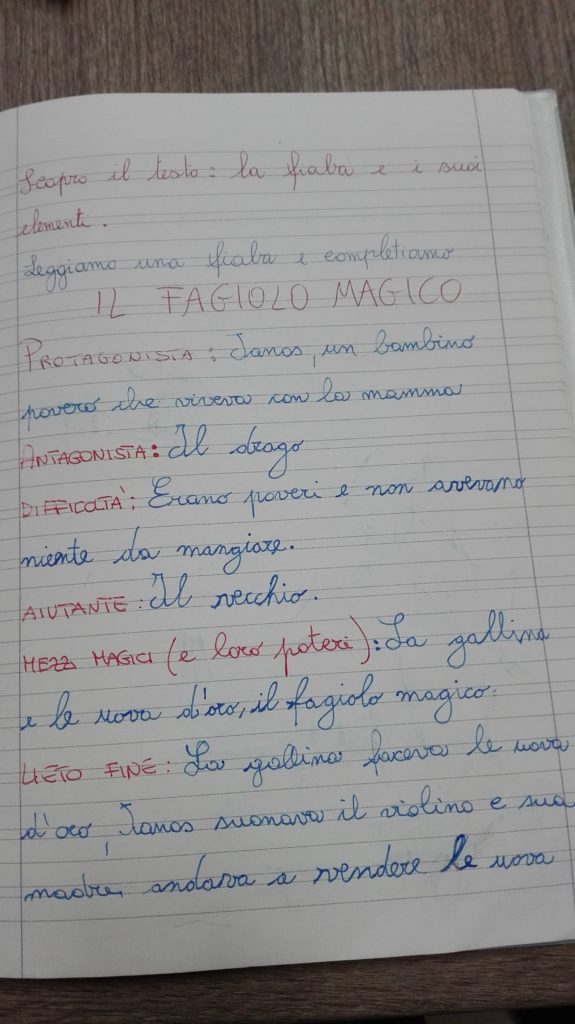 Scopro il testo: la fiaba e i suoi
elementi.
Leggiamo una fiaba e completiamo
IL FAGIOLO MAGICO
PROTAGONISTA: Janos, un bambino
povero che viveva con la mamma
ANTAGONISTA: Il drago
DIFFICOLTÀ: Erano poveri e non avevano
niente da mangiare.
AIUTANTE: Il vecchio.
MEZZI MAGICI (e loro poteri): La gallina
e le uova d'oro, il fagiolo magico.
LIETO FINE: La gallina faceva le uova
d'oro, Janos suonava il violino e sua
madre, andava a vendere le uova